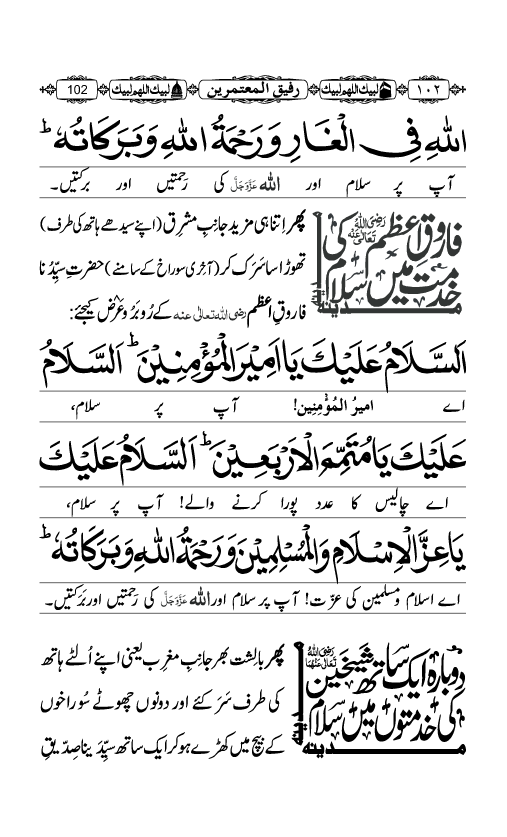 102 لبيك اللهم لبيك رفيق المعتمرين لبيك اللهم لبيك ١٠٢
اللّٰهِ فِی الْغَارِ وَرَحْمَةُ اللّٰهِ وَبَرَكَاتُهٗ ؕ
آپ پر سلام اور اللّٰہ عَزَّوَجَلَّ کی رحمتیں اور برکتیں۔
فاروقِ اعظم رضی اللّٰہ تعالیٰ عنہ کی
خدمت میں سلام
مدینہ
پھر اِتنا ہی مزید جانبِ مشرِق (اپنے سیدھے ہاتھ کی طرف)
تھوڑا سا سَرَک کر (آخِری سوراخ کے سامنے) حضرتِ سیِّدُنا
فاروقِ اعظم رضی اللّٰہ تعالیٰ عنہ کے رُوبَرُو عَرض کیجئے:
اَلسَّلَامُ عَلَيْكَ يَا اَمِيْرَ الْمُؤْمِنِيْنَ ؕ اَلسَّلَامُ
اے امیرُ المُؤْمِنِین! آپ پر سلام،
عَلَيْكَ يَا مُتَمِّمَ الْاَرْبَعِيْنَ ؕ اَلسَّلَامُ عَلَيْكَ
اے چالیس کا عدد پورا کرنے والے! آپ پر سلام،
يَا عِزَّ الْاِسْلَامِ وَالْمُسْلِمِيْنَ وَرَحْمَةُ اللّٰهِ وَبَرَكَاتُهٗ ؕ
اے اسلام و مسلمین کی عزّت! آپ پر سلام اور اللّٰہ عَزَّوَجَلَّ کی رحمتیں اور بَرَکتیں۔
دوبارہ ایک ساتھ شیخین رضی اللّٰہ تعالیٰ عنہما
کی خدمتوں میں سلام
مدینہ
پھر بالِشت بھر جانبِ مغرِب یعنی اپنے اُلٹے ہاتھ
کی طرف سَرَ کئے اور دونوں چھوٹے سُوراخوں
کے بیچ میں کھڑے ہو کر ایک ساتھ سیِّدَینا صِدّیقِ